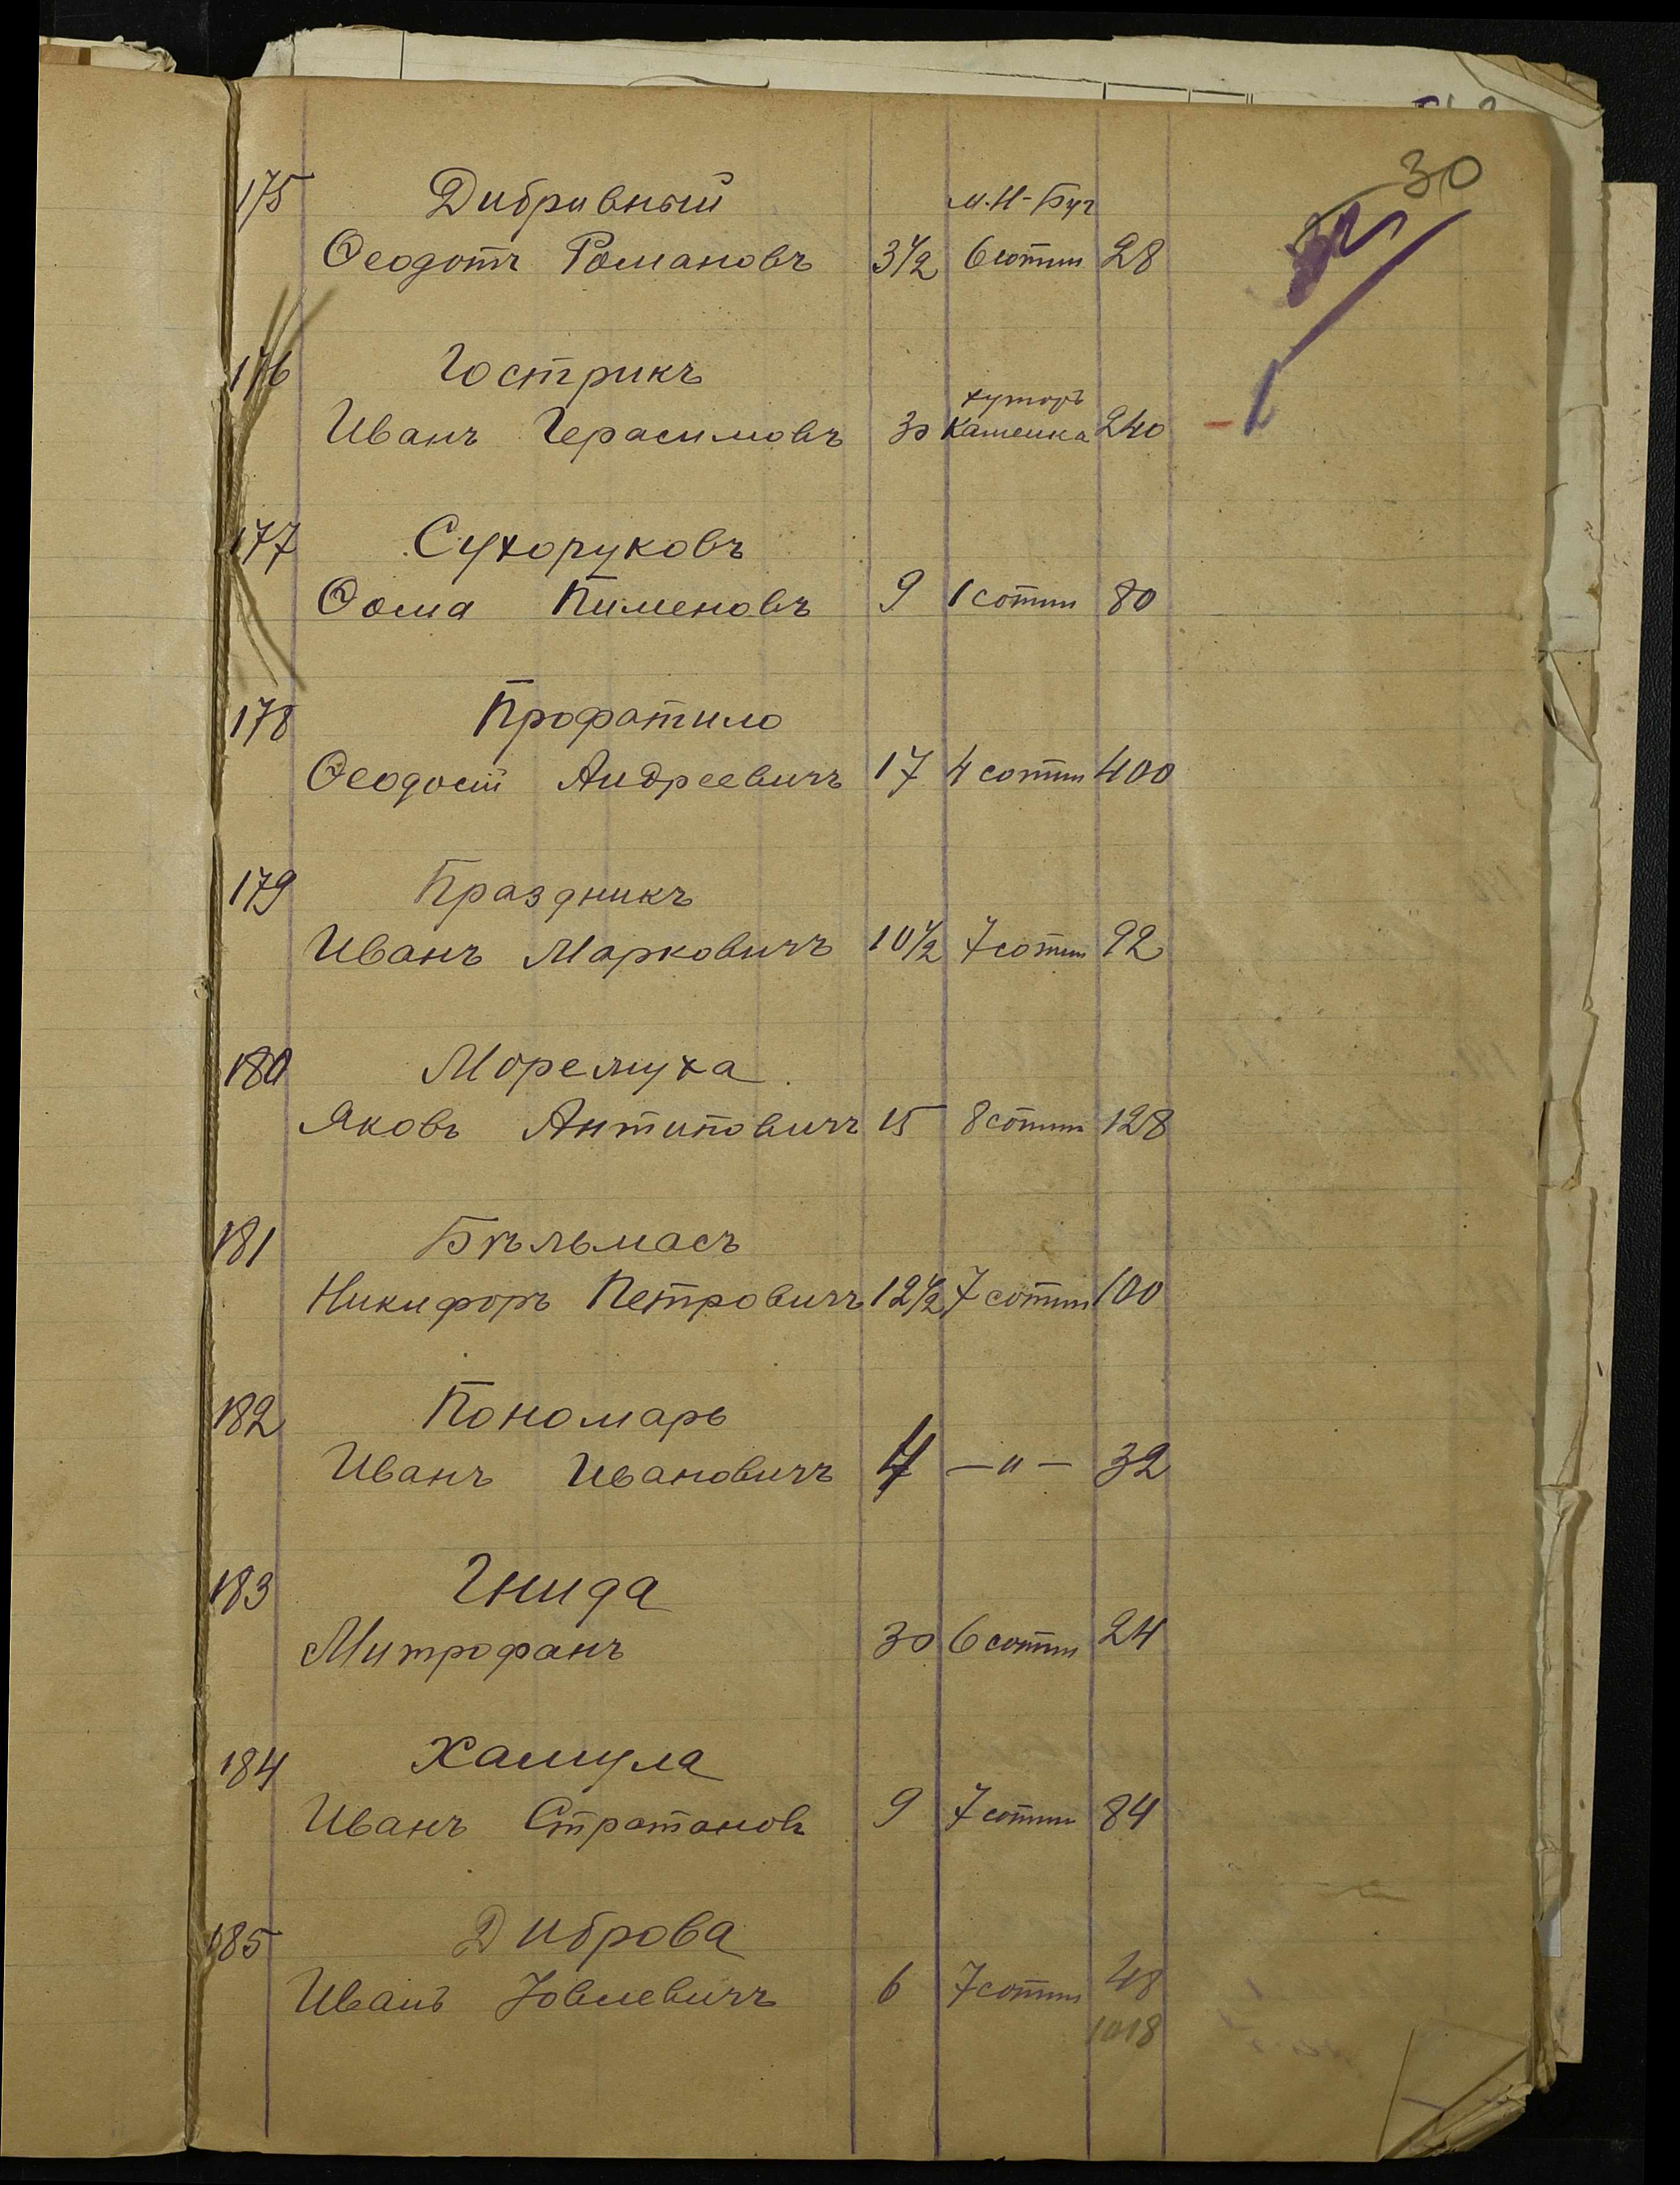 30
175 Дибривный м.Н-Буг
Ѳеодотъ Романовъ 3½ 6 сотни 28
176 Гострикъ хуторъ
Иванъ Герасимовъ 30 Каменка 240
177 Сухоруковъ
Ѳома Пименовъ 9 1 сотни 80
178 Профатило
Ѳеодосій Андреевичъ 17 4 сотни 400
179 Праздникъ
Иванъ Марковичъ 10½ 7 сотни 92
180 Моремуха
Яковъ Антиповичъ 15 8 сотни 128
181 Бѣльмасъ
Никифоръ Петровичъ 12½ 7 сотни 100
182 Пономарь
Иванъ Ивановичъ 4 —"— 32
183 Гнида
Митрофанъ 30 6 сотни 24
184 Хамула
Иванъ Стратоновъ 9 7 сотни 84
185 Диброва
Иванъ Іовлевичъ 6 7 сотни 48
1018